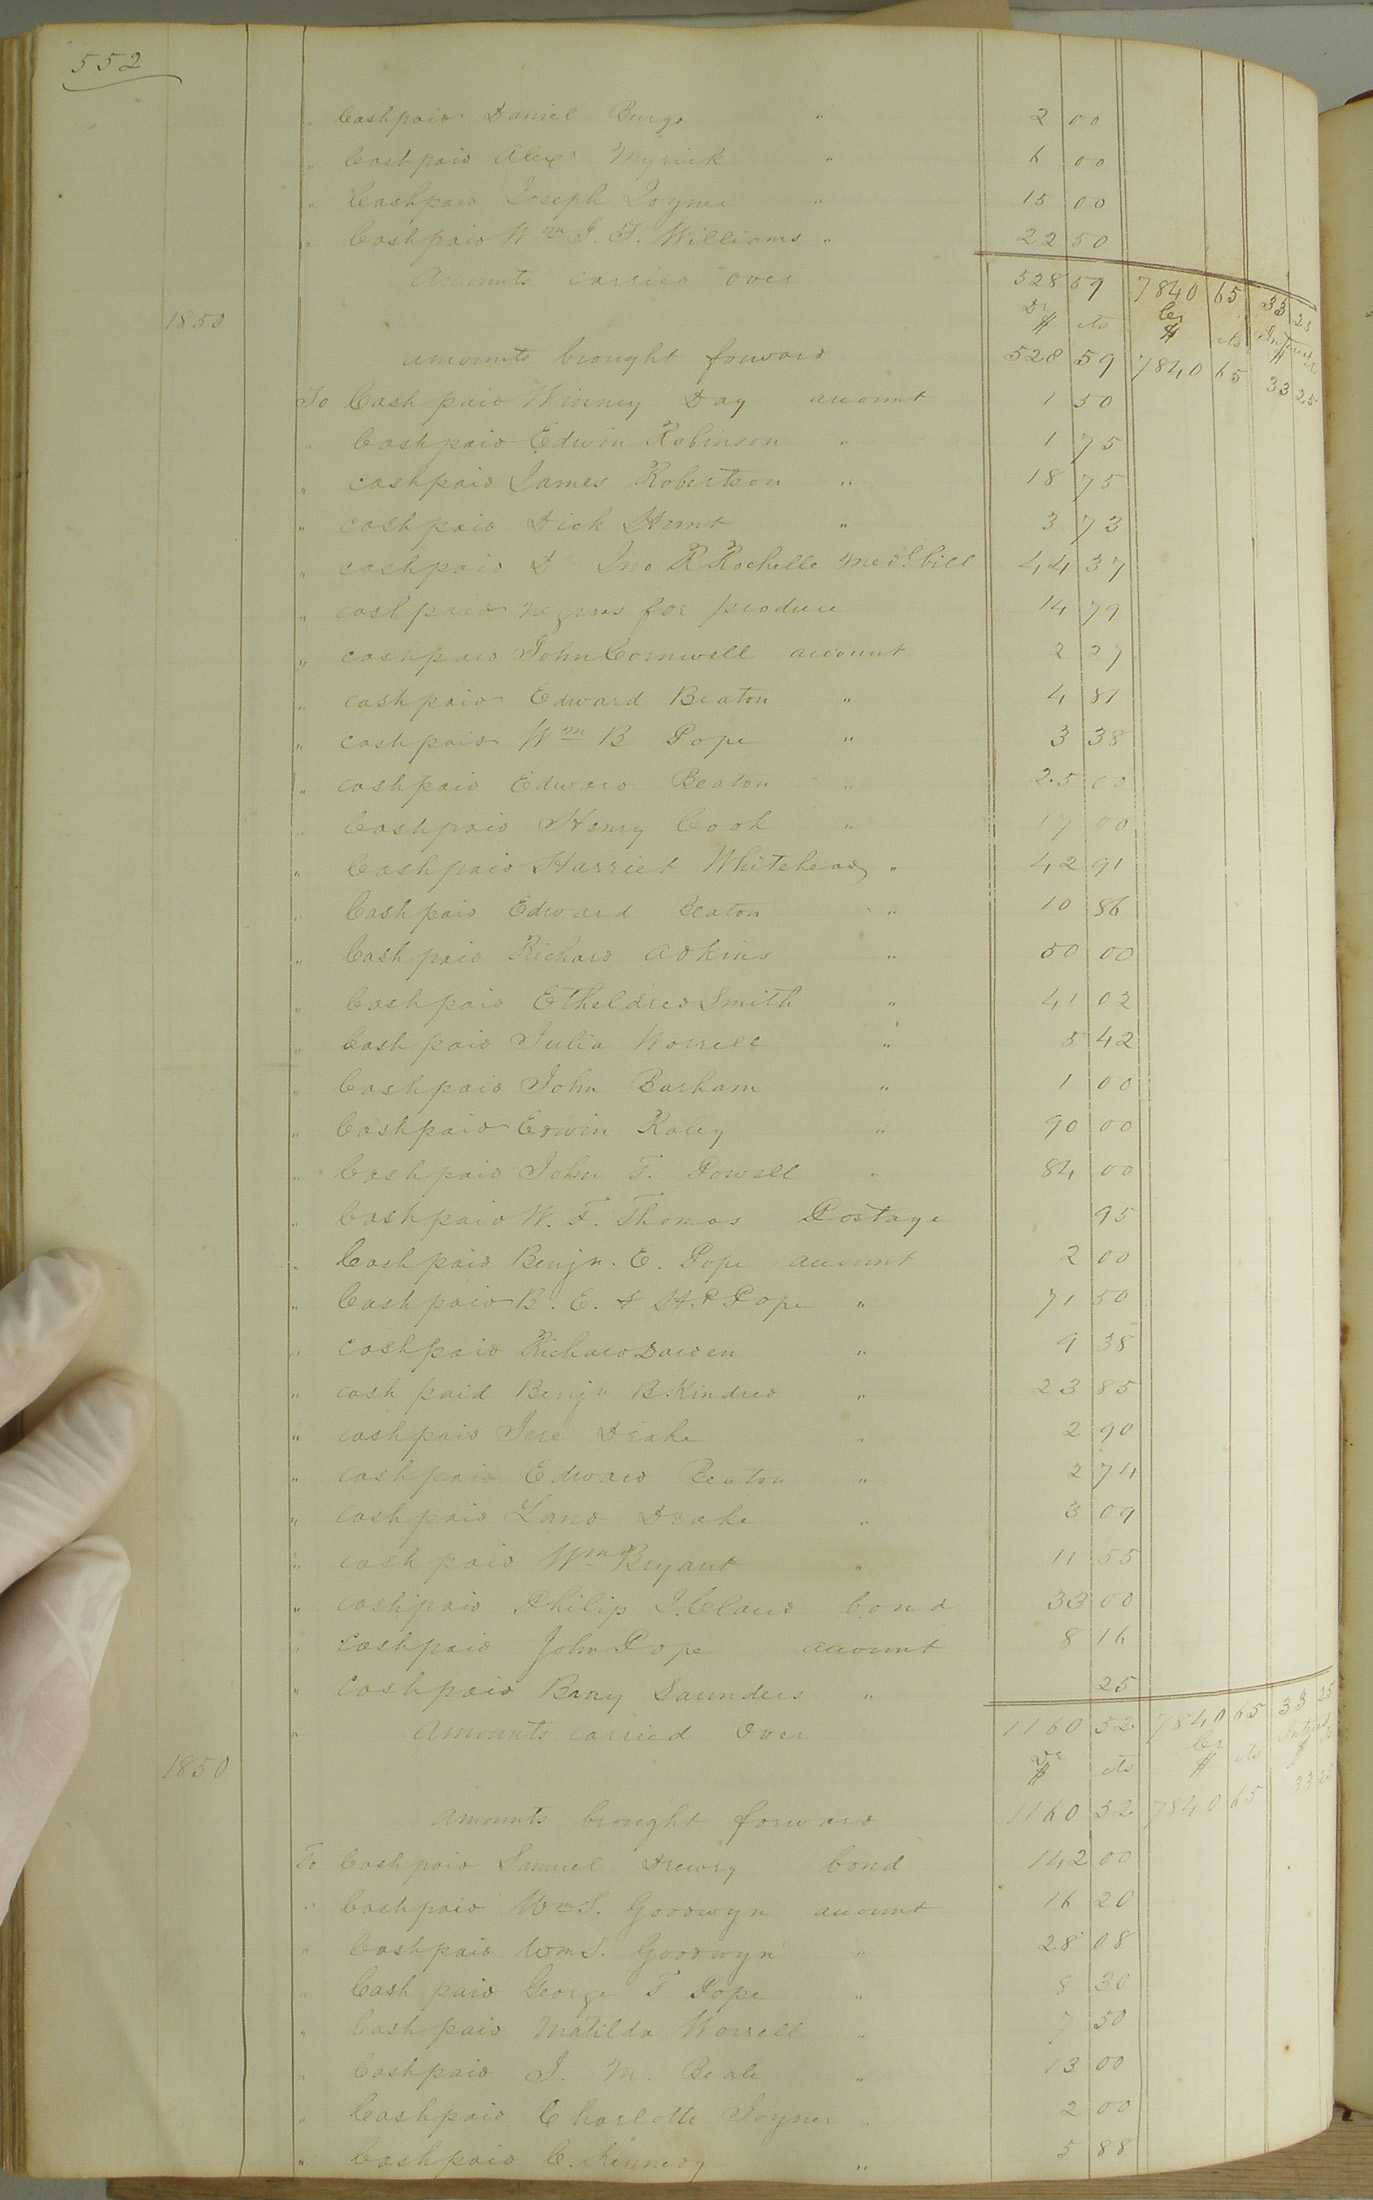 552
" Cash paid Daniel Burgs " 2 00
" Cash paid Alexr Myrick " 6 00
" Cash paid Joseph Joyner " 15 00
" Cash paid Wm J. T. Williams " 22 50
Amounts carried over 528 59 7840 65 33 25
1850 Dr $ cts Cr $ cts Interest $
amounts brought forward 528 59 7840 65 33 25
To Cash paid Winney Day account 1 50
" Cash paid Edwin Robinson " 1 75
" cash paid James Robertson " 18 75
" cash paid Dick Hunt " 3 73
" cash paid D Jno R Rochelle Medl. bill 44 37
" cash paid negroes for produce 14 79
" cash paid John Cornwell account 2 27
" cash paid Edward Beaton " 4 81
" cash paid Wm B Pope " 3 38
" cash paid Edward Beaton " 25 00
" Cash paid Henry Cook " 17 00
" Cash paid Harriet Whitehead " 42 91
" Cash paid Edward Beaton " 10 86
" Cash paid Richard Adkins " 50 00
" Cash paid Etheldred Smith " 41 02
" Cash paid Julia Worrell " 5 42
" Cash paid John Barham " 1 00
" Cash paid Edwin Raley " 90 00
" Cash paid John T. Powell " 84 00
" Cash paid W. F. Thomas Postage 95
" Cash paid Benjn. E. Pope account 2 00
" Cash paid B. E. & H P Pope " 71 50
" cash paid Richard Darden " 9 38
" cash paid Benjn B Kindred " 23 85
" cash paid Jere Drake " 2 90
" cash paid Edward Beaton " 2 74
" cash paid Land Drake " 3 09
" cash paid Wm Bryant " 11 55
" cash paid Philip J. Claud bond 33 00
" cash paid John Pope account 8 16
" cash paid Barry Saunders " 25
" Amounts carried Over 1160 52 7840 65 33 25
1850 Dr $ cts Cr $ cts Interest $
amounts brought forward 1160 52 7840 65 33 25
To Cash paid Samuel Drewry bond 142 00
" Cash paid Wm S. Goodwyn account 16 20
" Cash paid Wm S. Goodwyn " 28 08
" Cash paid George T Pope " 8 30
" Cash paid Matilda Worrell " 7 50
" Cash paid J. M. Beale " 13 00
" Cash paid Charlotte Joyner " 2 00
" Cash paid C. Kennedy " 5 88